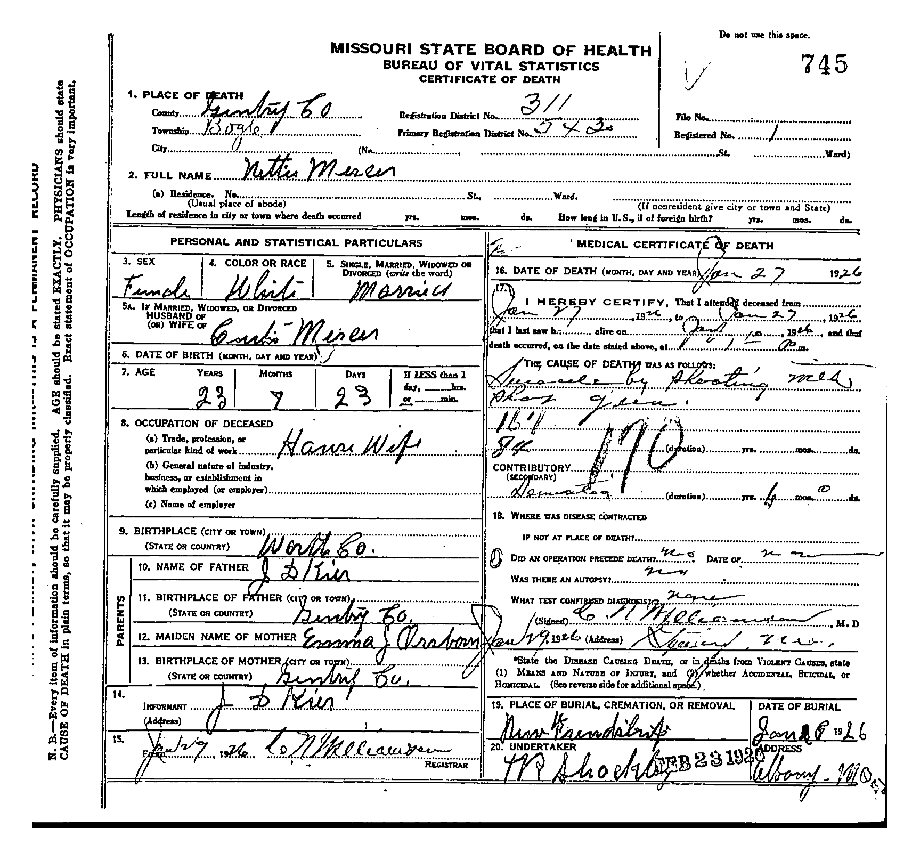 Do not use this space.
MISSOURI STATE BOARD OF HEALTH
BUREAU OF VITAL STATISTICS
CERTIFICATE OF DEATH
745
1. PLACE OF DEATH
County Gentry Co
Registration District No. 311
File No.
Township Bogle
Primary Registration District No. 5430
Registered No. 1
City (No. St. Ward)
2. FULL NAME Nettie Mercer
(a) Residence. No. St., Ward.
(Usual place of abode) (If nonresident give city or town and State)
Length of residence in city or town where death occurred yrs. mos. ds. How long in U.S., if of foreign birth? yrs. mos. ds.
PERSONAL AND STATISTICAL PARTICULARS
3. SEX
Female
4. COLOR OR RACE
White
5. SINGLE, MARRIED, WIDOWED OR DIVORCED (write the word)
Married
5A. IF MARRIED, WIDOWED, OR DIVORCED
HUSBAND OF
(OR) WIFE OF Curtis Mercer
6. DATE OF BIRTH (MONTH, DAY AND YEAR)
7. AGE YEARS MONTHS DAYS If LESS than 1 day, hrs. or min.
23 7 23
8. OCCUPATION OF DECEASED
(a) Trade, profession, or particular kind of work House Wife
(b) General nature of industry, business, or establishment in which employed (or employer)
(c) Name of employer
9. BIRTHPLACE (CITY OR TOWN)
(STATE OR COUNTRY) Worth Co.
PARENTS
10. NAME OF FATHER J D Kier
11. BIRTHPLACE OF FATHER (CITY OR TOWN)
(STATE OR COUNTRY) Gentry Co.
12. MAIDEN NAME OF MOTHER Emma J Osborn
13. BIRTHPLACE OF MOTHER (CITY OR TOWN)
(STATE OR COUNTRY) Gentry Co.
14.
INFORMANT J D Kier
(Address)
15.
1926 C N Williamson
REGISTRAR
MEDICAL CERTIFICATE OF DEATH
16. DATE OF DEATH (MONTH, DAY AND YEAR) Jan 27 1926
17.
I HEREBY CERTIFY, That I attended deceased from
Jan 27, 1926, to Jan 27, 1926
that I last saw h alive on 1926, and that
death occurred, on the date stated above, at m.
THE CAUSE OF DEATH WAS AS FOLLOWS:
by shooting with
shot gun.
170
(duration) yrs. mos. ds.
CONTRIBUTORY
(SECONDARY)
(duration) yrs. 6 mos. 0 ds.
18. WHERE WAS DISEASE CONTRACTED
IF NOT AT PLACE OF DEATH?
DID AN OPERATION PRECEDE DEATH? no DATE OF
WAS THERE AN AUTOPSY? no
WHAT TEST CONFIRMED DIAGNOSIS? none
(Signed) C N Williamson, M. D
Jan 29, 1926 (Address)
*State the DISEASE CAUSING DEATH, or in deaths from VIOLENT CAUSES, state
(1) MEANS AND NATURE OF INJURY, and (2) whether ACCIDENTAL, SUICIDAL, or
HOMICIDAL. (See reverse side for additional space.)
19. PLACE OF BURIAL, CREMATION, OR REMOVAL
New Friendship
DATE OF BURIAL
Jan 28 1926
20. UNDERTAKER
Shockley
FEB 23 1926
ADDRESS
Albany. Mo
N. B.—Every item of information should be carefully supplied. AGE should be stated EXACTLY. PHYSICIANS should state
CAUSE OF DEATH in plain terms, so that it may be properly classified. Exact statement of OCCUPATION is very important.